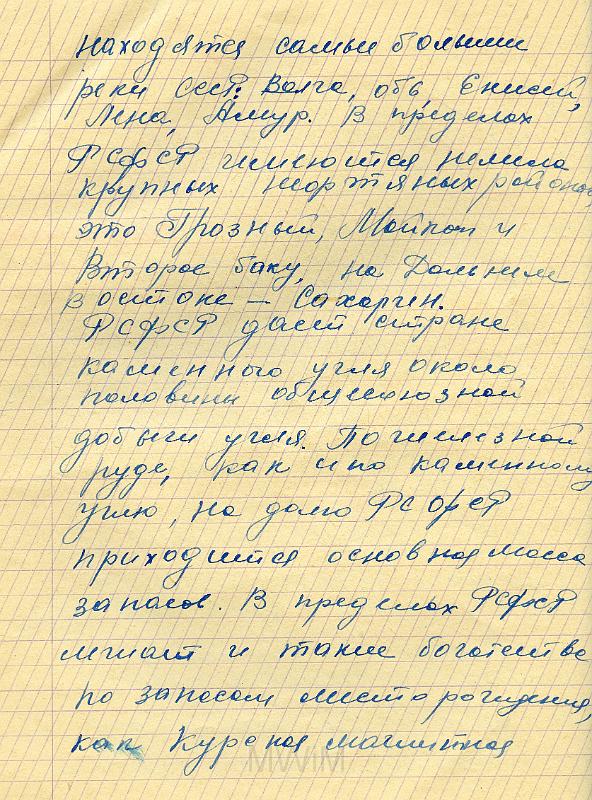 находятся самые большие
реки СССР: Волга, обь, Енисей,
Лена, Амур. В пределах
РСФСР имеются немало
крупных нефтяных районов,
это Грозный, Майкоп и
Второе баку, на Дальнем
Востоке — Сахалин.
РСФСР дает стране
каменного угля около
половины общесоюзной
добычи угля. По железной
руде, как и по каменному
углю, на долю РСФСР
приходится основная масса
запасов. В пределах РСФСР
и такие богатства
по запасам месторождения,
как Курская магнитная
MWIM